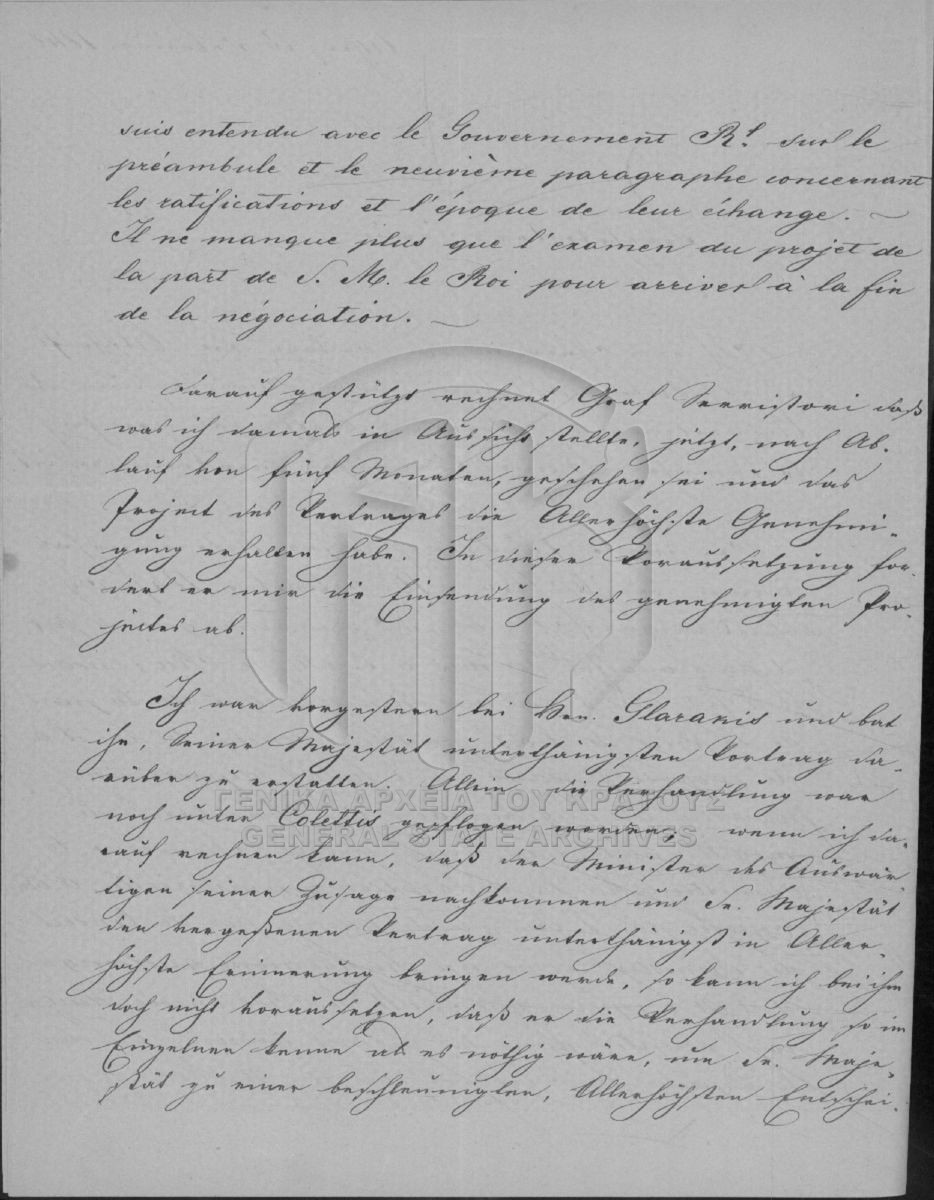 suis entendu avec le Gouvernement R.l sur le
préambule et le neuvième paragraphe concernant
les ratifications et l'époque de leur échange. —
Il ne manque plus que l'examen du projet de
la part de S. M. le Roi pour arriver à la fin
de la négociation. —
Darauf gestützt rechnet Graf Serristori daß
was ich damals in Aussicht stellte, jetzt, nach Ab-
lauf von fünf Monaten, geschehen sei und das
Project des Vertrages die Allerhöchste Genehmi-
gung erhalten habe. In dieser Voraussetzung for-
dert er mir die Einsendung des genehmigten Pro-
jectes ab.
Ich war vorgestern bei Hrn. Glarakis und bat
ihn, Seiner Majestät unterthänigsten Vortrag da-
rüber zu erstatten. Allein die Verhandlung war
noch unter Colettis gepflogen worden; wenn ich da-
rauf rechnen kann, daß der Minister des Auswär-
tigen seiner Zusage nachkommen und Sr. Majestät
den vergeßenen Vertrag unterthänigst in Aller-
höchste Erinnerung bringen werde, so kann ich bei ihm
doch nicht voraussetzen, daß er die Verhandlung so im
Einzelnen kenne als es nöthig wäre, um Sr. Maje-
stät zu einer beschleunigten, Allerhöchsten Entschei-
ΓΕΝΙΚΑ ΑΡΧΕΙΑ ΤΟΥ ΚΡΑΤΟΥΣ
GENERAL STATE ARCHIVES